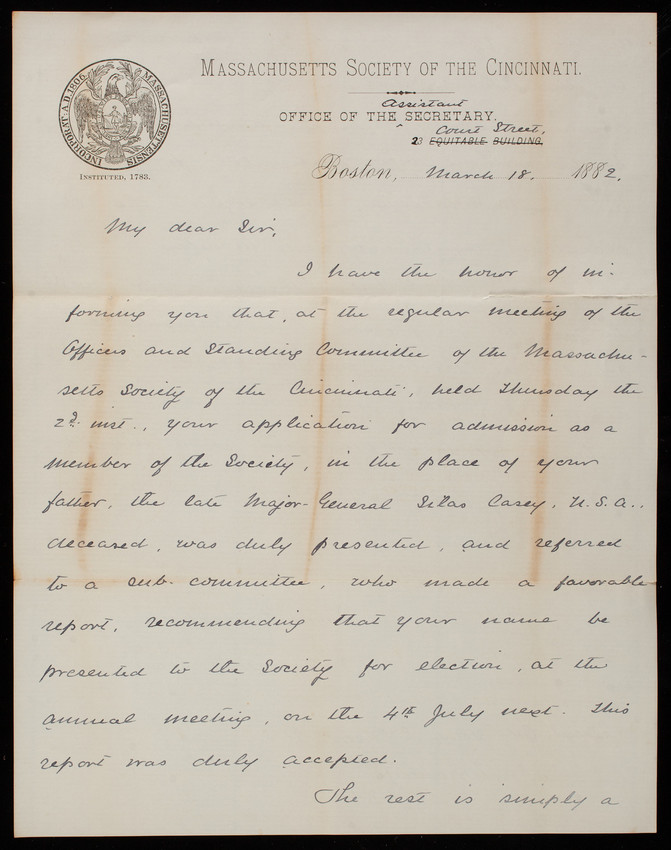 INCORPORAT: A.D. 1806. MASSACHUSETTENSIS
INSTITUTED, 1783.
MASSACHUSETTS SOCIETY OF THE CINCINNATI.
Assistant
OFFICE OF THE SECRETARY.
Court Street,
23 EQUITABLE BUILDING.
Boston, March 18. 1882.
My dear Sir,
I have the honor of in-
forming you that, at the regular meeting of the
Officers and Standing Committee of the Massachu-
setts Society of the Cincinnati, held Thursday the
2d. inst., your application for admission as a
member of the Society, in the place of your
father, the late Major-General Silas Casey, U.S.A.,
deceased, was duly presented, and referred
to a sub-committee, who made a favorable
report, recommending that your name be
presented to the Society for election, at the
annual meeting, on the 4th July next. This
report was duly accepted.
The rest is simply a